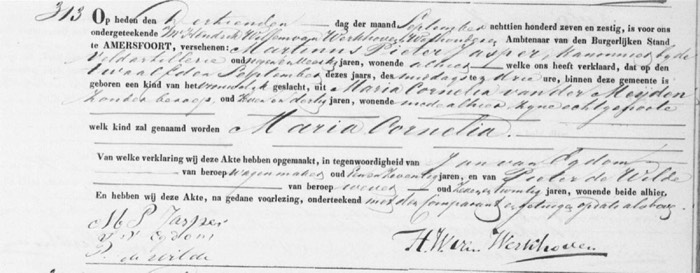 313 Op heden den Dertienden dag der maand September achttien honderd zeven en zestig, is voor ons
ondergeteekende Mr Hendrik Willem van Werkhoven, Wethouder, Ambtenaar van den Burgerlijken Stand
te AMERSFOORT, verschenen: Martinus Pieter Jasper, Kanonnier bij de
Veldartillerie oud jaren, wonende alhier welke ons heeft verklaard, dat op den
twaalfden September dezes jaars, des middags ten drie ure, binnen deze gemeente is
geboren een kind van het vrouwelijk geslacht, uit Maria Cornelia van der Meijden
zonder beroep, oud Zeven en dertig jaren, wonende mede alhier zijne echtgenoote
welk kind zal genaamd worden Maria Cornelia.
Van welke verklaring wij deze Akte hebben opgemaakt, in tegenwoordigheid van Jan van Egdom
van beroep wagenmaker oud jaren, en van Pieter de Wilde
van beroep wever oud jaren, wonende beide alhier.
En hebben wij deze Akte, na gedane voorlezing, onderteekend met den Comparant en getuigen op date als boven
M P Jasper
J v Egdom
P. de Wilde
H. W. van Werkhoven